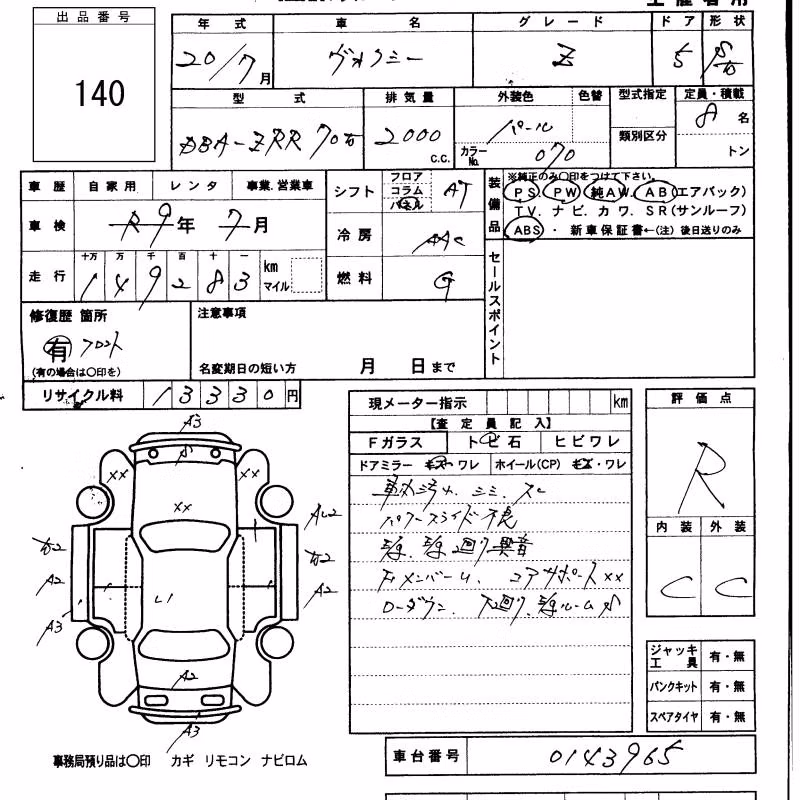 出品番号
140
年式 車名 グレード ドア 形状
20/7月 ヴォクシー Z 5
型式 排気量 外装色 色替 型式指定 定員・積載
DBA-ZRR70 2000 c.c. パール カラーNo. 070 類別区分 8名
トン
車歴 自家用 レンタ 事業.営業車
車検 R9年 7月
走行 十万 万 千 百 十 一
149283 km マイル
シフト フロア コラム パネル AT
冷房 AAC
燃料 G
装備品
※純正のみ〇印をつけて下さい。
PS. PW. 純AW. AB(エアバック)
TV. ナビ. カワ. SR(サンルーフ)
ABS・ 新車保証書←(注) 後日送りのみ
セールスポイント
修復歴 箇所
有 フロント
(有の場合は〇印を)
注意事項
名変期日の短い方 月 日まで
リサイクル料 13330円
現メーター指示 km
【査定員記入】
Fガラス トビ石 ヒビワレ
ドアミラー キズ・ワレ ホイール(CP) キズ・ワレ
パワースライド不良
下廻り異音
コアサポートxx
ローダウン. 下廻り.
評価点
R
内装 外装
C C
A3
xx xx
xx
A2
A2
A3
L1
A2
A2
A3
ジャッキ工具 有・無
パンクキット 有・無
スペアタイヤ 有・無
事務局預り品は〇印 カギ リモコン ナビロム
車台番号 0143965